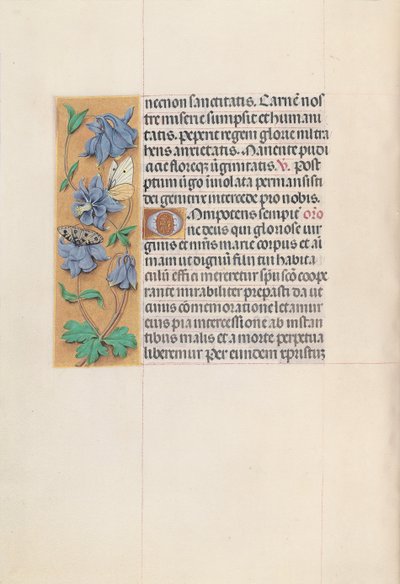 necnon sanctitatis. Carnē nos
tre miserie sumpsit et humani
tatis. Peperit regem glorie ultra
hens anxietatis. Manente pudi
citie floreq; v̄ginitatis. V. Post
partum v̄go inviolata permansisti
dei genitrix intercede pro nobis.
Omnipotens sempit̄ orō
ne deus qui gloriose vir
ginis et mr̄is marie corpus et ani
mam ut dignum filii tui habita
culū effici mereretur spū scō coope
rante mirabiliter preparasti da ut
cuius comemoratione letamur
eius pia intercessione ab instan
tibus malis et a morte perpetua
liberemur Per eundem xpristum